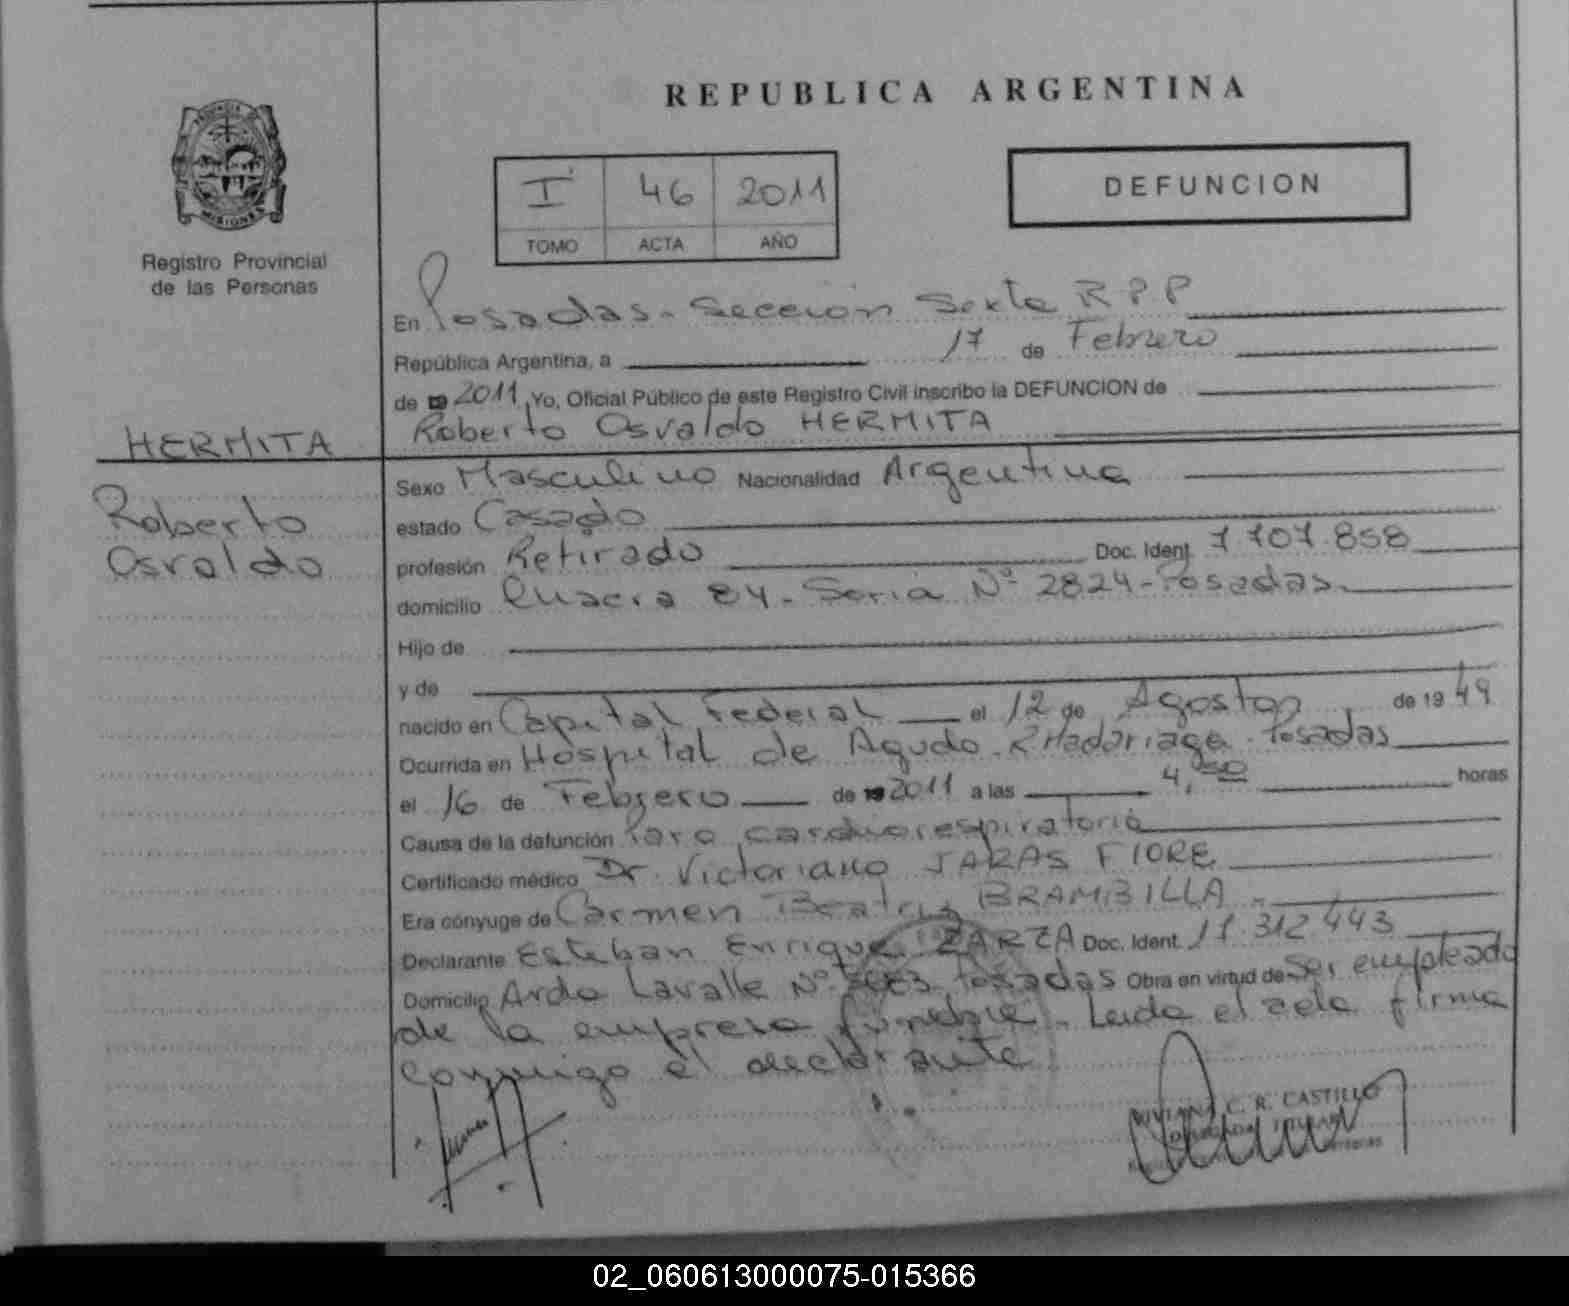 REPUBLICA ARGENTINA
I 46 2011
TOMO ACTA AÑO
DEFUNCION
PROVINCIA
MISIONES
Registro Provincial
de las Personas
HERMITA
Roberto
Osvaldo
En Posadas - Sección Sexta R P P
República Argentina, a 17 de Febrero
de 2011 Yo, Oficial Público de este Registro Civil inscribo la DEFUNCION de
Roberto Osvaldo HERMITA
Sexo Masculino Nacionalidad Argentina
estado Casado
profesión Retirado Doc. Ident. 7 707.858
domicilio Chacra 84 - Soria Nº 2824 - Posadas
Hijo de
y de
nacido en Capital Federal el 12 de Agosto de 1949
Ocurrida en Hospital de Agudo R Madariaga - Posadas
el 16 de Febrero de 2011 a las 4,50 horas
Causa de la defunción Paro cardiorespiratorio
Certificado médico Dr. Victoriano JARAS FIORE
Era cónyuge de Carmen Beatriz BRAMBILLA
Declarante Esteban Enrique ZARZA Doc. Ident. 11 312 443
Domicilio Avda Lavalle Nº Posadas Obra en virtud de ser empleado
de la empresa fúnebre - Leida el acta firma
conmigo el declarante
VIVIANA C. R. CASTILLO
02_060613000075-015366